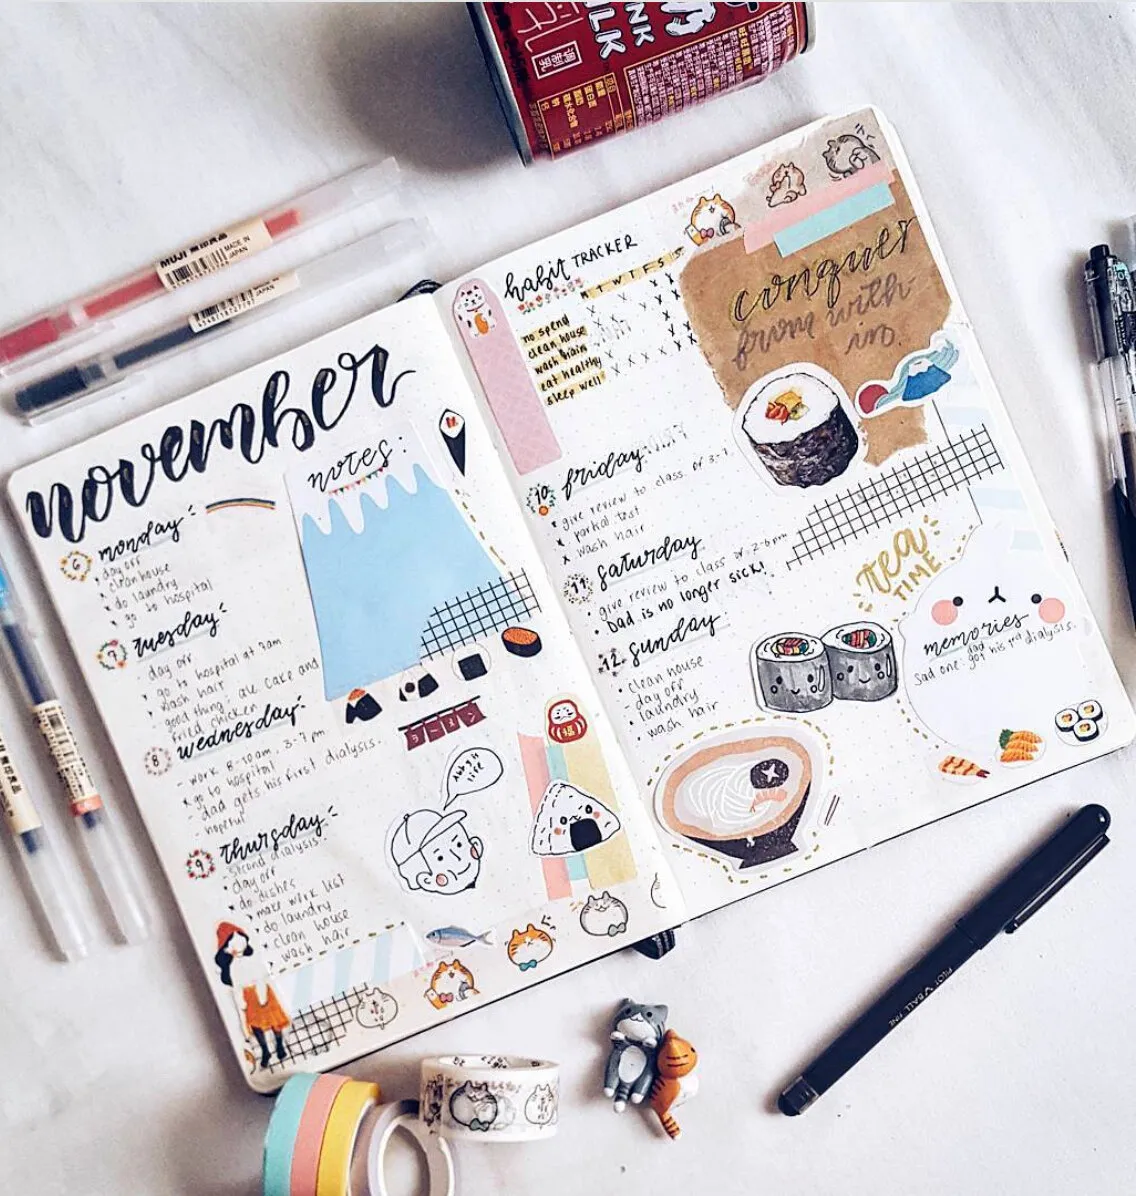 調制乳
MUJI 無印良品
MADE IN
JAPAN
JAPAN
november
notes:
6 monday
day off
clean house
do laundry
go to hospital
7 Tuesday
day off
go to hospital at 7am
wash hair
good thing: ate cake and
fried chicken
8 wednesday
work 8-10am, 3-7pm
go to hospital
dad gets his first dialysis.
hopeful
9 thursday
second dialysis
day off
do dishes
make work list
do laundry
clean house
wash hair
ラーメン
life
habit TRACKER
M T W T F S S
no spend
clean house
wash hair
eat healthy
sleep well
conquer
from with
in.
10 friday
give review to class
partial test
wash hair
11 saturday
give review to class
Dad is no longer sick!
12. sunday
clean house
day off
laundry
wash hair
福
tea
TIME
memories
Sad one: dad got his 1st dialysis.
PILOT V BALL FINE